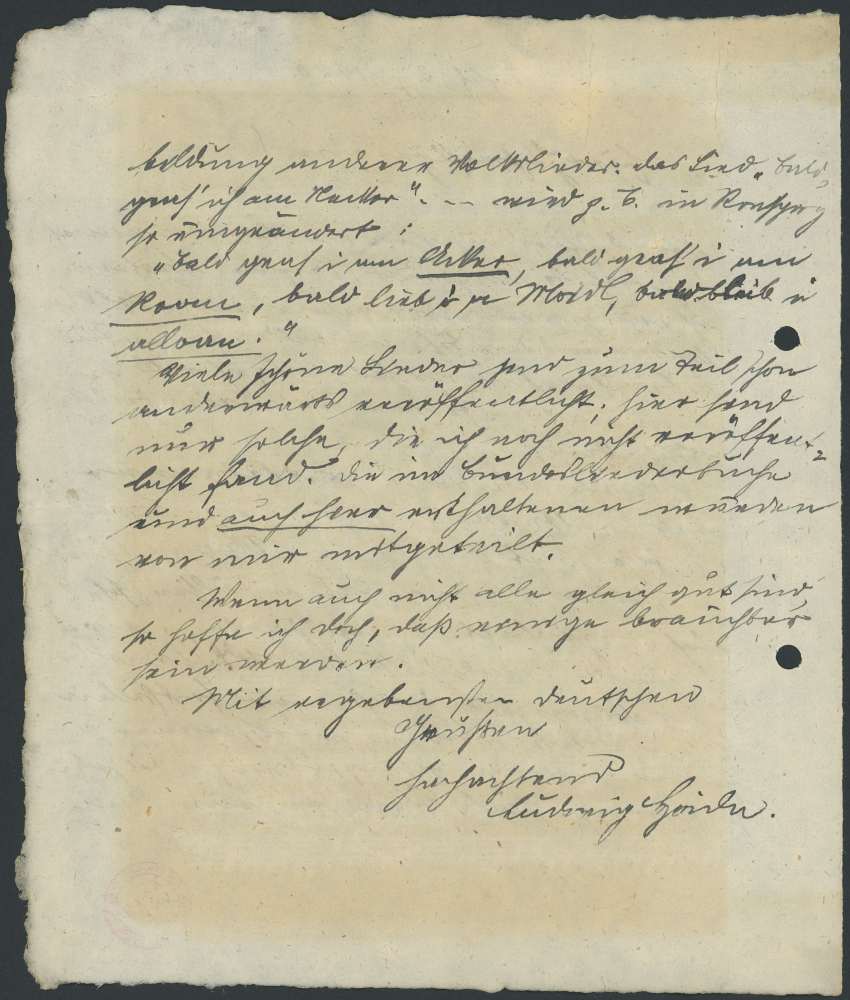 bildung anderer Volkslieder. das Lied „Bald
gras' ich am Neckar“. -- wird z. B. in Ronsperg
so umgeändert:
„Bald gras' i am Acker, bald gras' i am
Roam, bald lieb i a Moidl, bald bleib i
alloan.“
Viele schöne Lieder sind zum Teil schon
anderwärts veröffentlicht; hier sind
nur solche, die ich noch nicht veröffent-
licht fand. Die im Bundesliederbuche
und auch hier enthaltenen wurden
von mir mitgeteilt.
Wenn auch nicht alle gleich gut sind,
so hoffe ich doch, daß einige brauchbar
sein werden.
Mit ergebensten deutschen
Grüßen
hochachtend
Ludwig Hoidn.